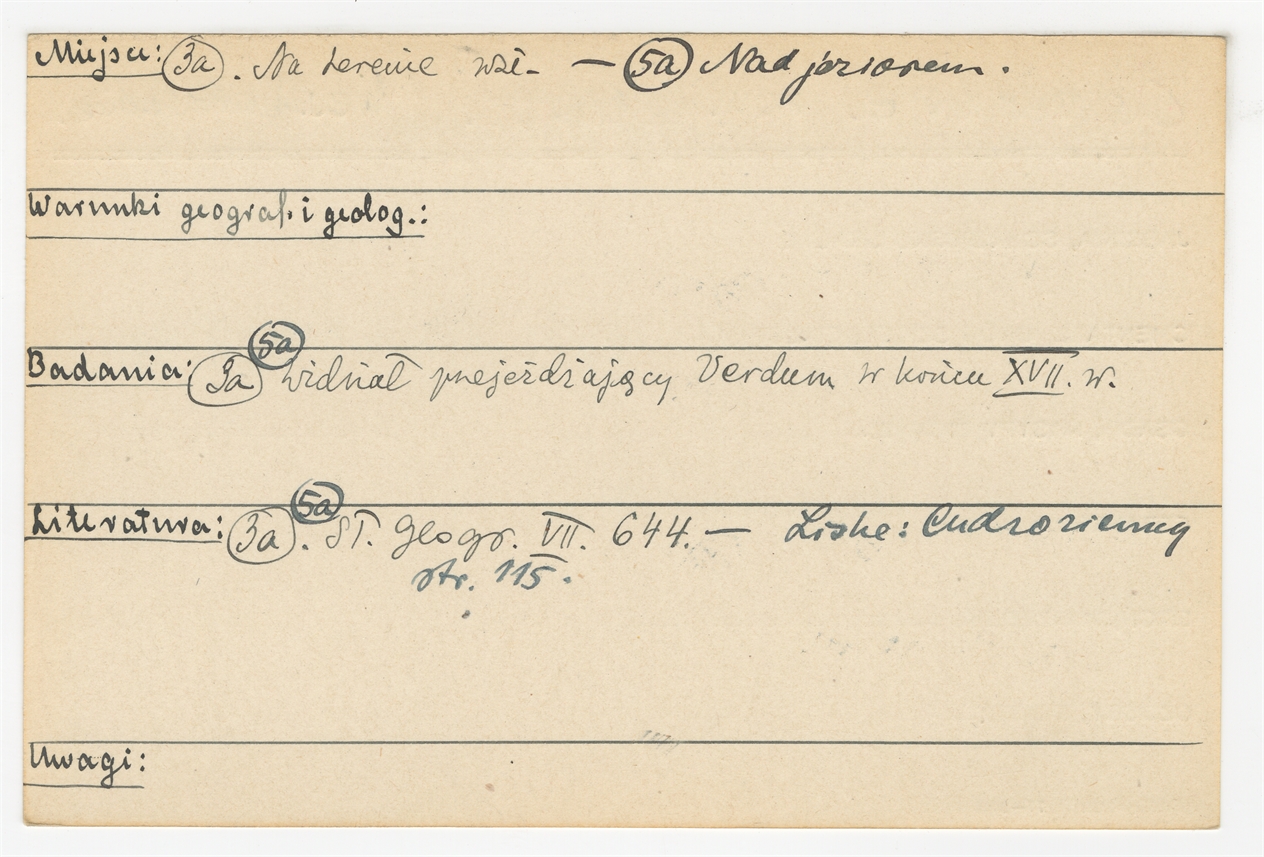 Miejsce: 3a. Na terenie wsi. — 5a Nad jeziorem.
Warunki geograf. i geolog.:
Badania: 3a 5a widział przejeżdżający Verdum w końcu XVII. w.
Literatura: 3a. 5a Sł. Geogr. VII. 644. — Liske: Cudzoziemcy
str. 115.
Uwagi: